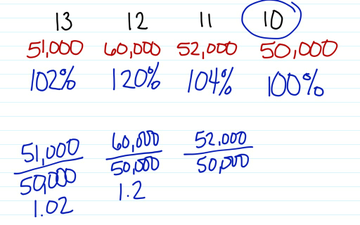 13 12 11 10
51,000 60,000 52,000 50,000
102% 120% 104% 100%
51,000 60,000 52,000
50,000 50,000 50,000
1.02 1.2